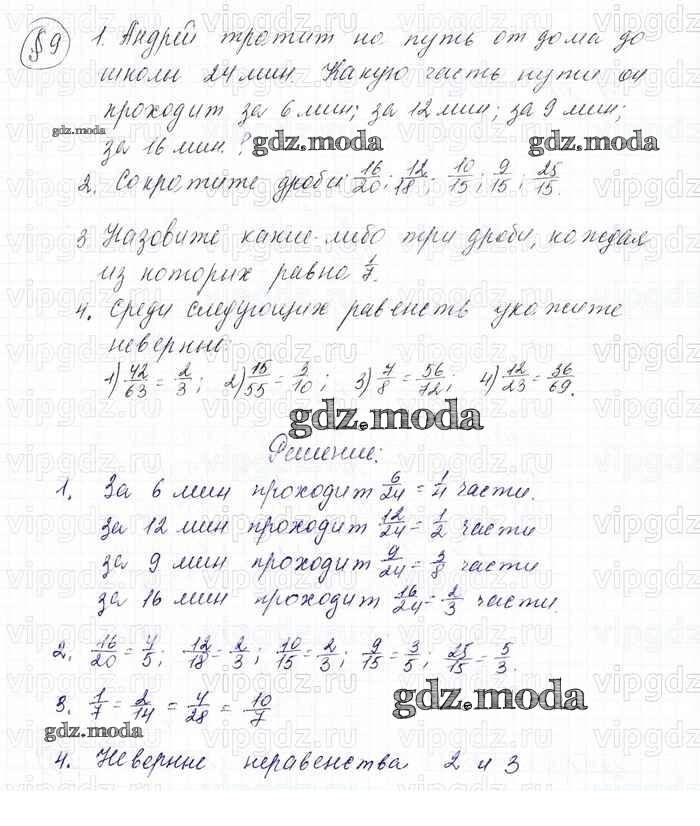 §9
1. Андрей тратит на путь от дома до
школы 24 мин. Какую часть пути он
проходит за 6 мин; за 12 мин; за 9 мин;
за 16 мин?
2. Сократите дроби: 16/20; 12/18; 10/15; 9/15; 25/15.
3. Назовите какие-либо три дроби, каждая
из которых равна 1/7.
4. Среди следующих равенств укажите
неверные:
1) 42/63 = 2/3; 2) 15/55 = 3/10; 3) 7/8 = 56/72; 4) 12/23 = 36/69.
Решение:
1. За 6 мин проходит 6/24 = 1/4 части.
за 12 мин проходит 12/24 = 1/2 части
за 9 мин проходит 9/24 = 3/8 части
за 16 мин проходит 16/24 = 2/3 части.
2. 16/20 = 4/5; 12/18 = 2/3; 10/15 = 2/3; 9/15 = 3/5; 25/15 = 5/3.
3. 1/7 = 2/14 = 4/28 = 10/7
4. Неверные неравенства 2 и 3
gdz.moda
gdz.moda
gdz.moda
gdz.moda
gdz.moda
gdz.moda
vipgdz.ru